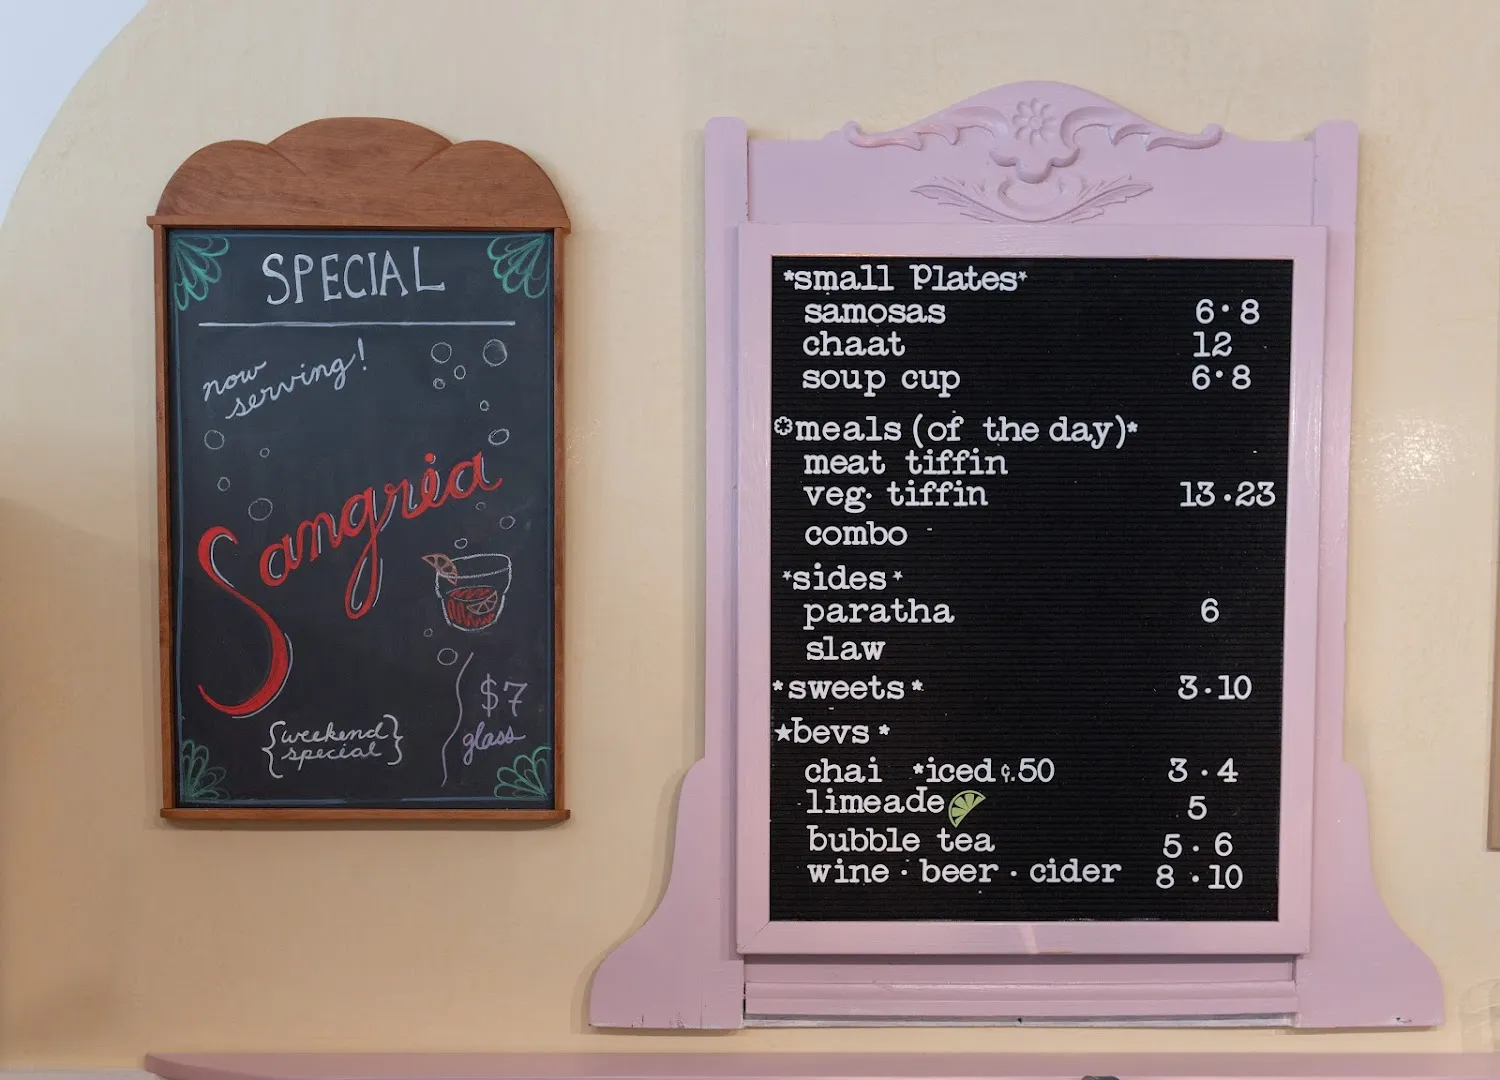 SPECIAL
now
serving!
Sangria
{weekend
special}
$7
glass
*small Plates*
samosas 6·8
chaat 12
soup cup 6·8
*meals (of the day)*
meat tiffin
veg· tiffin 13·23
combo
*sides*
paratha 6
slaw
*sweets* 3·10
★bevs*
chai *iced ¢.50 3·4
limeade 5
bubble tea 5·6
wine · beer · cider 8·10